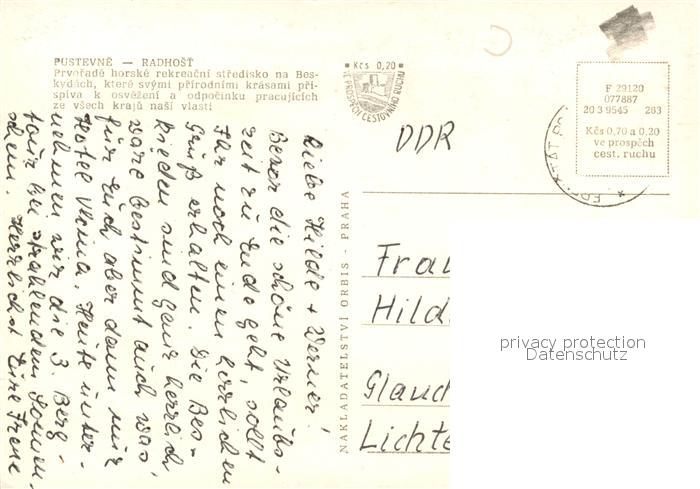 PUSTEVNĚ — RADHOŠŤ
Prvořadé horské rekreační středisko na Bes-
kydách, které svými přírodními krásami při-
spívá k osvěžení a odpočinku pracujících
ze všech krajů naší vlasti
Kčs 0,20
VE PROSPĚCH CESTOVNÍHO RUCHU
F 29120
077887
20 3 9545 283
Kčs 0,70 a 0,20
ve prospěch
cest. ruchu
DDR
NAKLADATELSTVÍ ORBIS - PRAHA
Liebe Hilde + Werner!
Bevor die schöne Urlaubs-
zeit zu Ende geht, sollt
Ihr noch einen herrlichen
Gruß erhalten. Die Bes-
kieden sind ganz herrlich
wäre bestimmt auch was
für Euch aber dann nur
Hotel Vlčina. Heute unter-
nehmen wir die 3. Berg-
tour bei strahlendem Sonnen-
schein. Herzlichst Eure Irene
Frau
Hild
Glauc
Lichte
privacy protection
Datenschutz